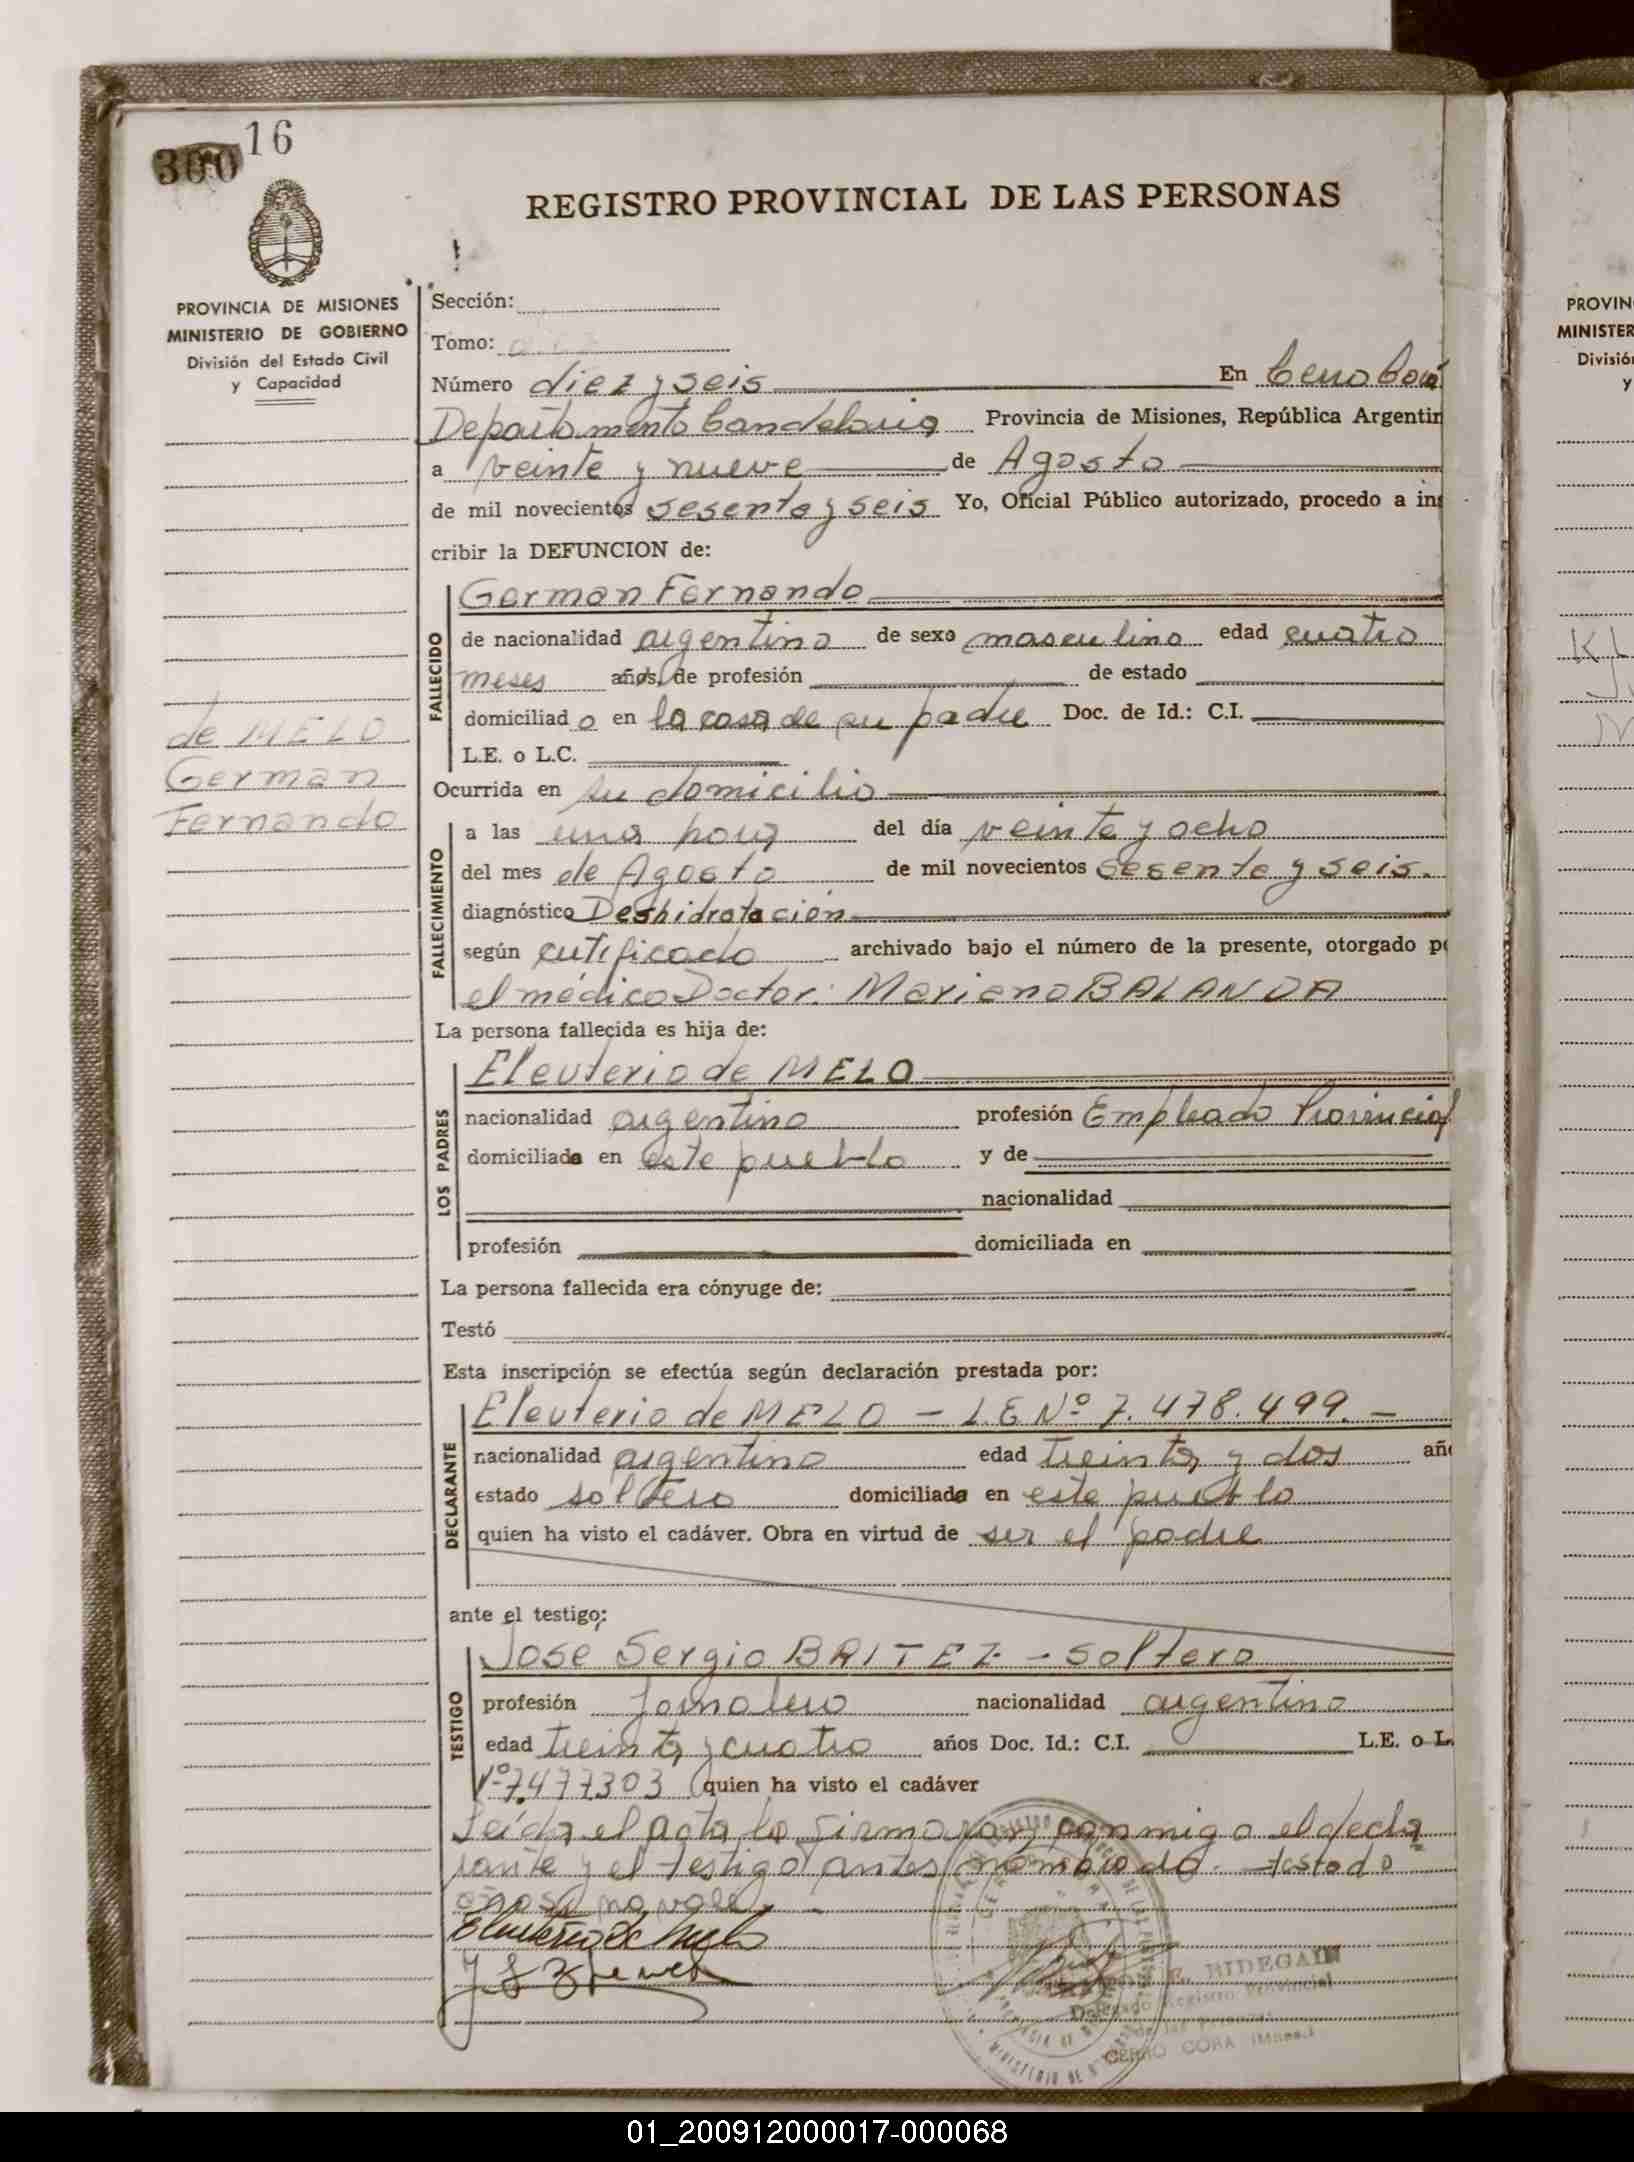 300 16
REGISTRO PROVINCIAL DE LAS PERSONAS
PROVINCIA DE MISIONES
MINISTERIO DE GOBIERNO
División del Estado Civil
y Capacidad
de MELO
German
Fernando
Sección:
Tomo:
Número diez y seis En Cerro Corá
Departamento Candelaria Provincia de Misiones, República Argentin
a veinte y nueve de Agosto
de mil novecientos sesenta y seis Yo, Oficial Público autorizado, procedo a ins
cribir la DEFUNCION de:
FALLECIDO
German Fernando
de nacionalidad argentino de sexo masculino edad cuatro
meses años, de profesión de estado
domiciliado en la casa de su padre Doc. de Id.: C.I.
L.E. o L.C.
Ocurrida en su domicilio
FALLECIMIENTO
a las una hora del día veinte y ocho
del mes de Agosto de mil novecientos sesenta y seis.
diagnóstico Deshidratación
según certificado archivado bajo el número de la presente, otorgado po
el médico Doctor: Mariano BALANDA
La persona fallecida es hija de:
LOS PADRES
Eleuterio de MELO
nacionalidad argentino profesión Empleado Provincial
domiciliado en este pueblo y de
nacionalidad
profesión domiciliada en
La persona fallecida era cónyuge de:
Testó
Esta inscripción se efectúa según declaración prestada por:
DECLARANTE
Eleuterio de MELO - L.E Nº 7.478.499. -
nacionalidad argentino edad treinta y dos año
estado soltero domiciliado en este pueblo
quien ha visto el cadáver. Obra en virtud de ser el padre
ante el testigo:
TESTIGO
José Sergio BRITEZ - soltero
profesión Jornalero nacionalidad argentino
edad treinta y cuatro años Doc. Id.: C.I. L.E. o L.
Nº 7.477.303 quien ha visto el cadáver
Leída el acta la firmaron conmigo el decla
rante y el testigo antes nombrado. testado
años, no vale. -
Eleuterio de Melo
E. BIDEGAIN
Delegado Registro Provincial
de las Personas
CERRO CORA (Mnes.)
PROVIN
MINISTER
Divisió
y
01_200912000017-000068